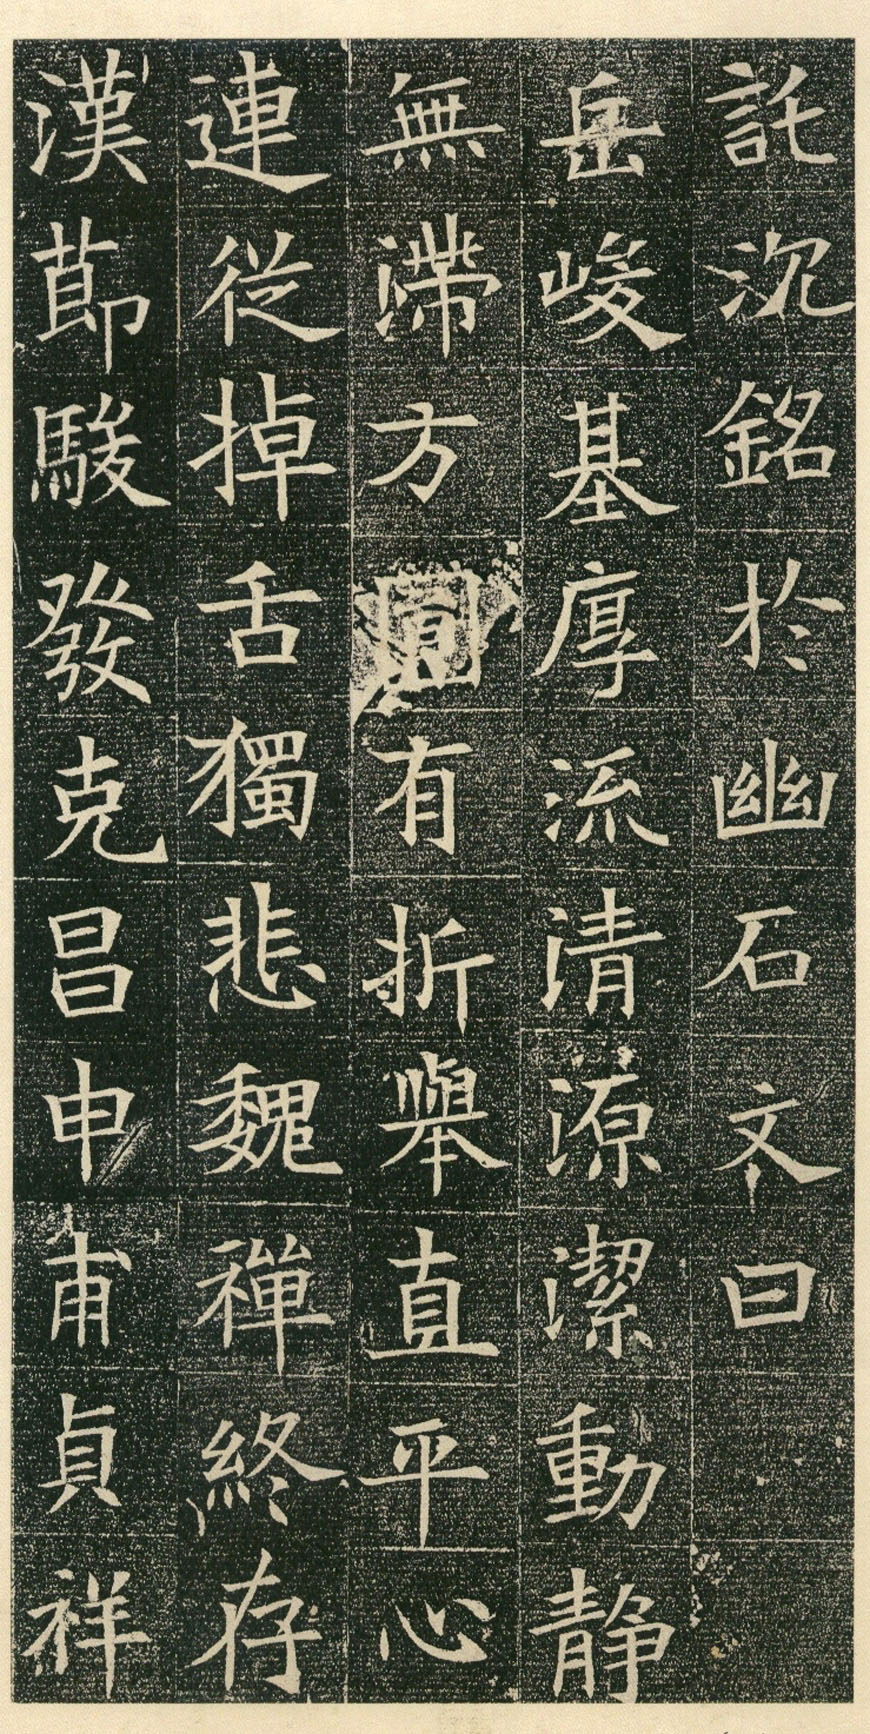 託沉銘於幽石文曰
岳峻基厚流清源潔動靜
無滯方圓有折舉直平心
連從掉舌獨悲魏禪終存
漢節駿發克昌申甫貞祥